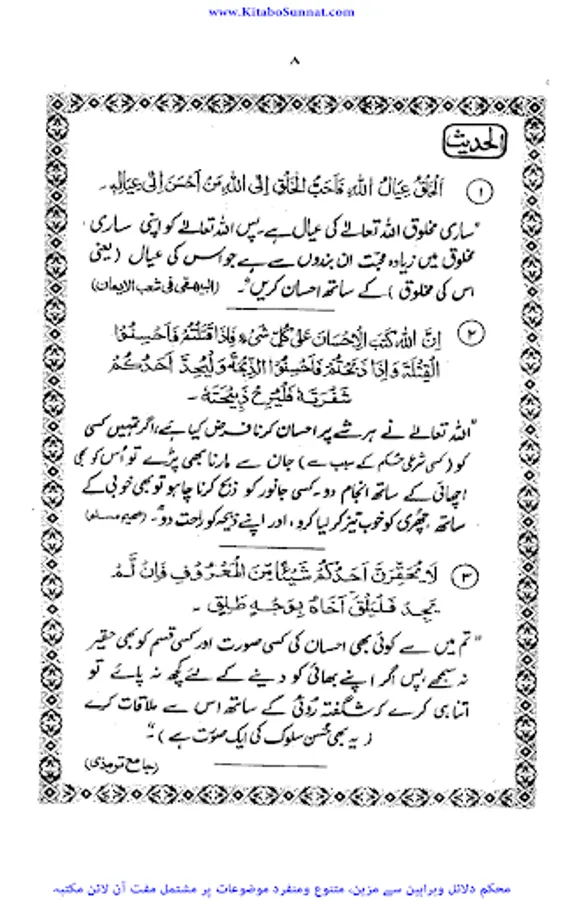 www.KitaboSunnat.com
۸
الحدیث
① اَلْخَلْقُ عِيَالُ اللهِ فَاَحَبُّ الْخَلْقِ اِلَى اللهِ مَنْ اَحْسَنَ اِلٰى عِيَالِهٖ۔
"ساری مخلوق اللہ تعالےٰ کی عیال ہے۔ پس اللہ تعالےٰ کو اپنی ساری
مخلوق میں زیادہ محبت ان بندوں سے ہے جو اس کی عیال (یعنی
اس کی مخلوق) کے ساتھ احسان کریں"۔ (البیہقی فی شعب الایمان)
② اِنَّ اللهَ كَتَبَ الْاِحْسَانَ عَلٰى كُلِّ شَيْءٍ فَاِذَا قَتَلْتُمْ فَاَحْسِنُوا
الْقِتْلَةَ وَاِذَا ذَبَحْتُمْ فَاَحْسِنُوا الذِّبْحَةَ وَلْيُحِدَّ اَحَدُكُمْ
شَفْرَتَهٗ فَلْيُرِحْ ذَبِيْحَتَهٗ۔
"اللہ تعالےٰ نے ہر شے پر احسان کرنا فرض کیا ہے، اگر تمہیں کسی
کو (کسی شرعی حکم کے سبب سے) جان سے مارنا بھی پڑے تو اُس کو بھی
اچھائی کے ساتھ انجام دو۔ کسی جانور کو ذبح کرنا چاہو تو بھی خوبی کے
ساتھ، چھری کو خوب تیز کر لیا کرو، اور اپنے ذبیحہ کو راحت دو"۔ (صحیح مسلم)
③ لَا يَحْقِرَنَّ اَحَدُكُمْ شَيْئًا مِّنَ الْمَعْرُوْفِ فَاِنْ لَّمْ
يَجِدْ فَلْيَلْقَ اَخَاهُ بِوَجْهٍ طَلِيْقٍ۔
"تم میں سے کوئی بھی احسان کی کسی صورت اور کسی قسم کو بھی حقیر
نہ سمجھے، پس اگر اپنے بھائی کو دینے کے لئے کچھ نہ پائے تو
اتنا ہی کرے کہ شگفتہ رُوئی کے ساتھ اس سے ملاقات کرے
(یہ بھی حُسن سلوک کی ایک صورت ہے)"۔
(جامع ترمذی)
محکم دلائل وبراہین سے مزین، متنوع ومنفرد موضوعات پر مشتمل مفت آن لائن مکتبہ